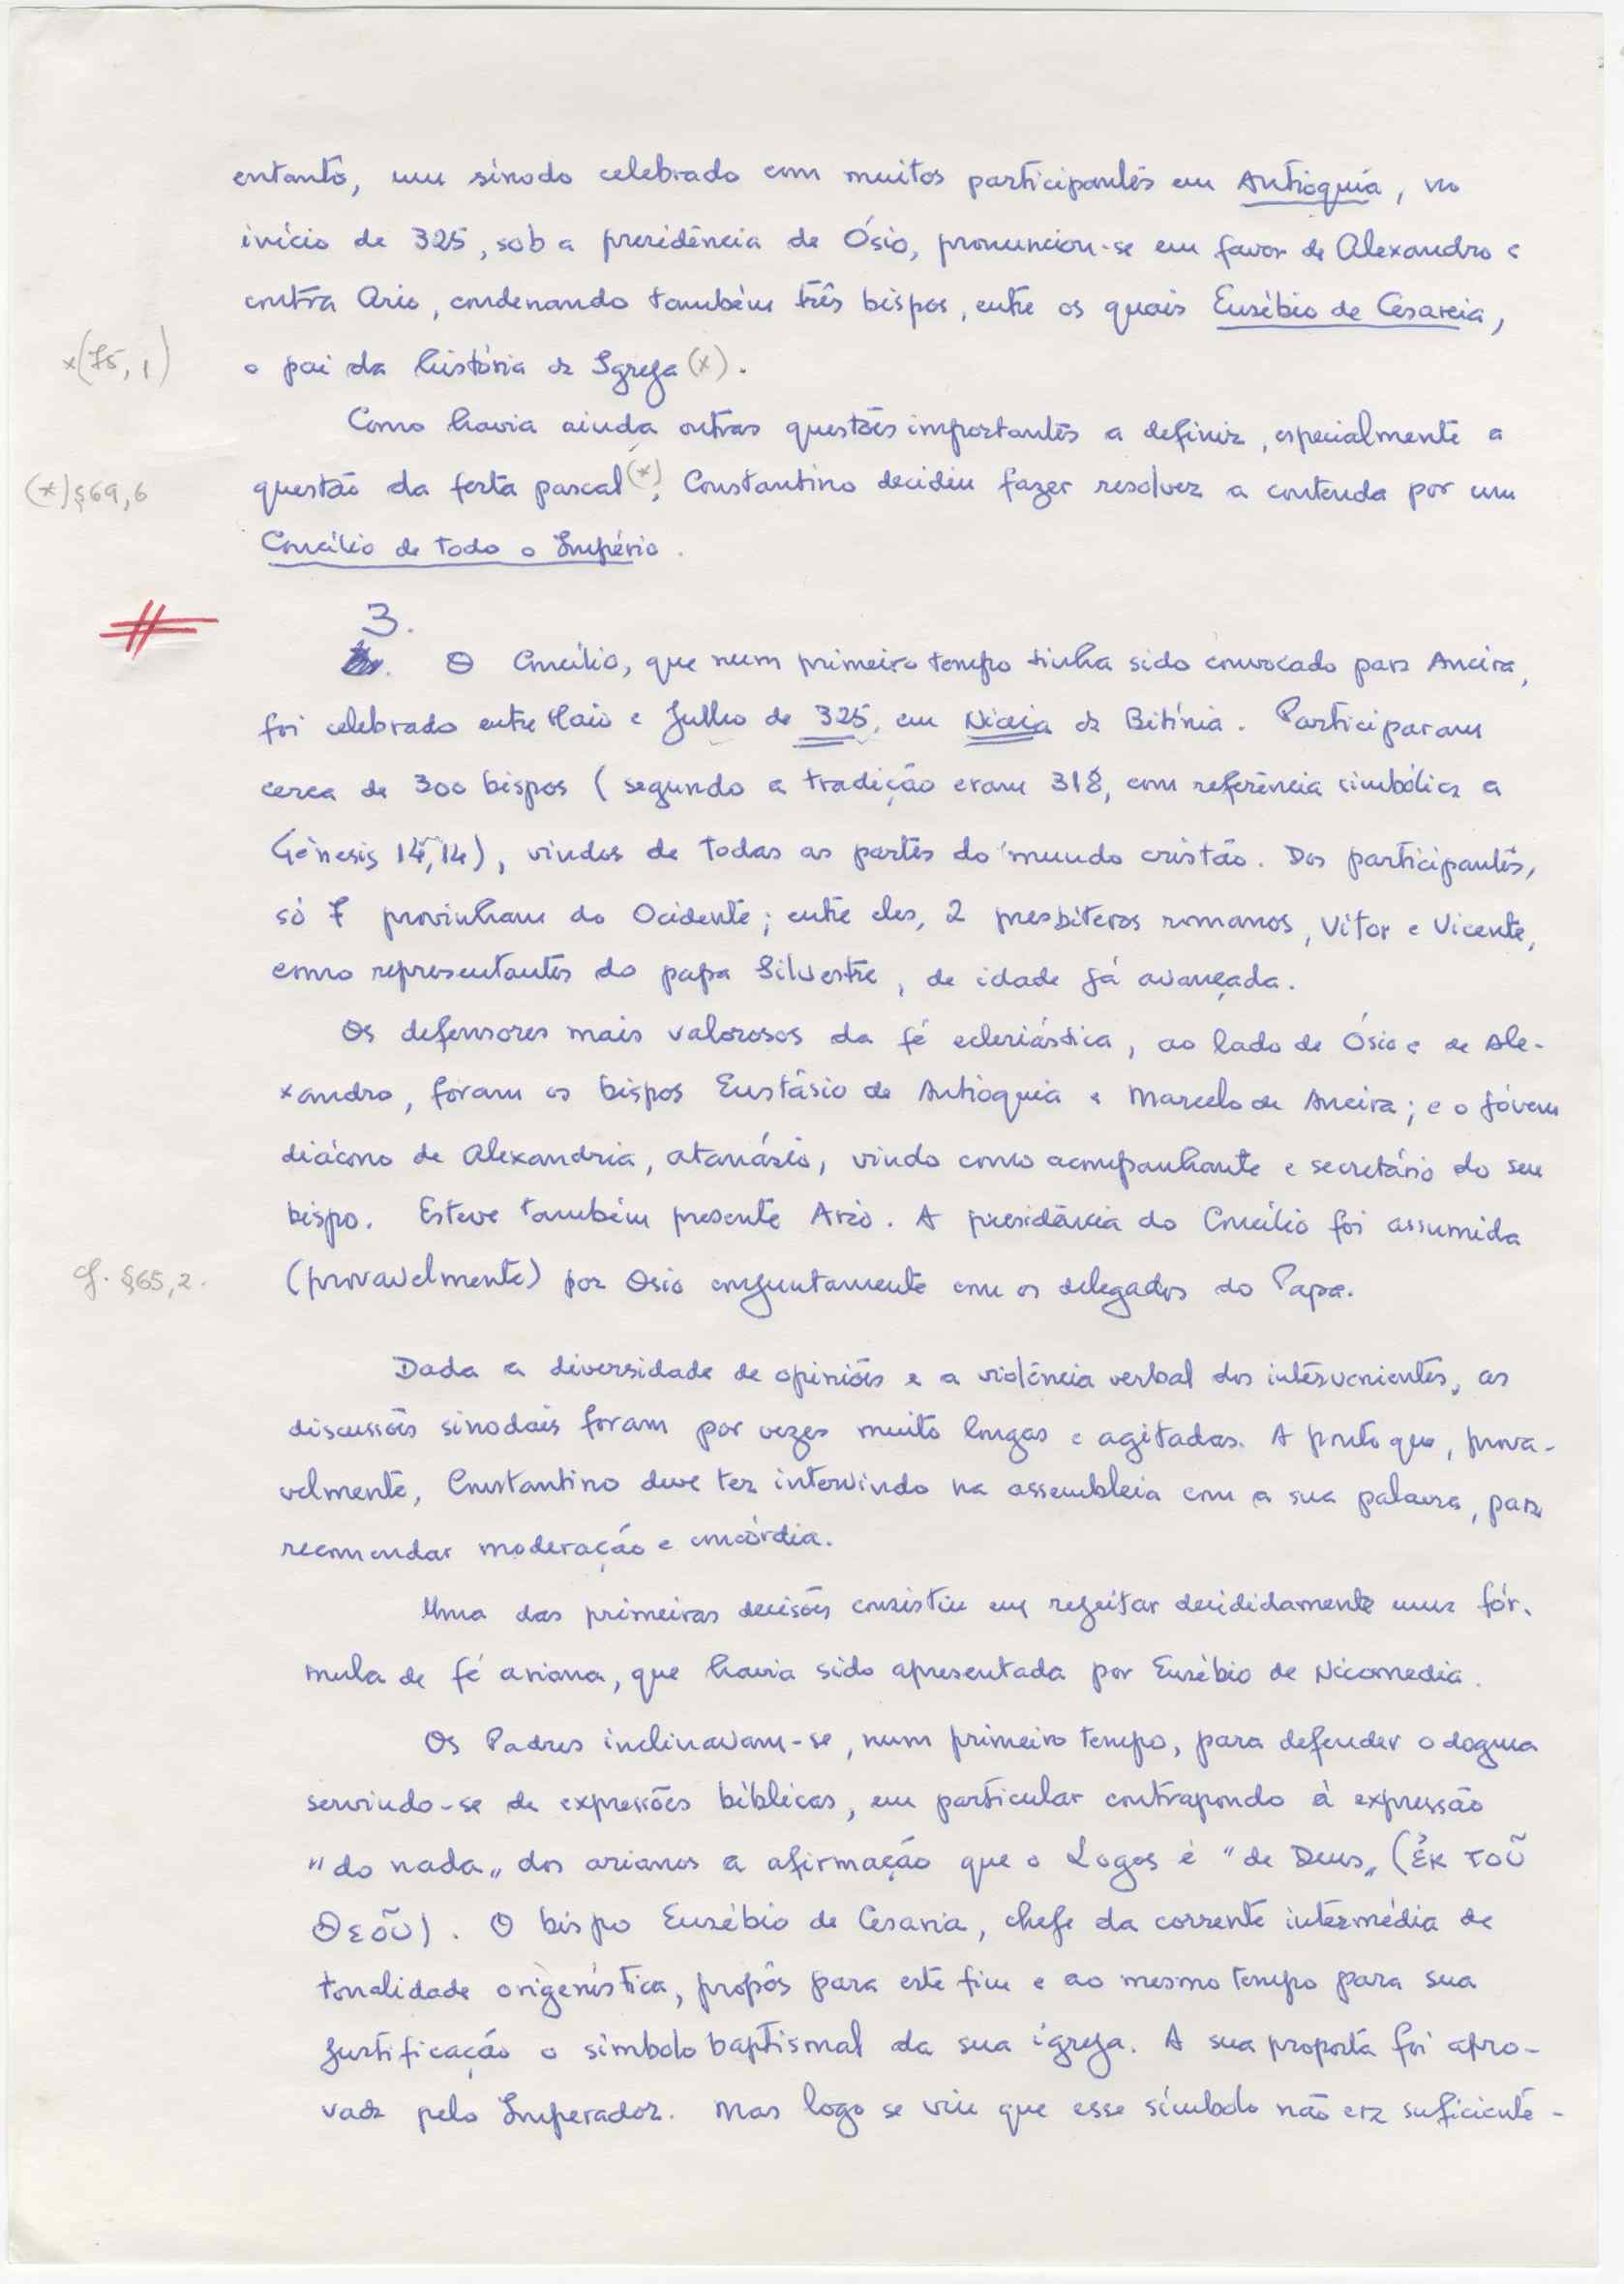 entanto, um sínodo celebrado com muitos participantes em Antioquia, no
início de 325, sob a presidência de Ósio, pronunciou-se em favor de Alexandro e
contra Ario, condenando também três bispos, entre os quais Eusébio de Cesareia,
x(75,1)
o pai da história da Igreja (x).
Como havia ainda outras questões importantes a definir, especialmente a
(x) §69,6
questão da festa pascal (x), Constantino decidiu fazer resolver a contenda por um
Concílio de todo o Império.
3.
O Concílio, que num primeiro tempo tinha sido convocado para Ancira,
foi celebrado entre Maio e Julho de 325, em Niceia da Bitínia. Participaram
cerca de 300 bispos (segundo a tradição eram 318, com referência simbólica a
Génesis 14,14), vindos de todas as partes do mundo cristão. Dos participantes,
só 7 provinham do Ocidente; entre eles, 2 presbíteros romanos, Vítor e Vicente,
como representantes do papa Silvestre, de idade já avançada.
Os defensores mais valorosos da fé eclesiástica, ao lado de Ósio e de Ale-
xandro, foram os bispos Eustásio de Antioquia e Marcelo de Ancira; e o jóvem
diácono de Alexandria, Atanásio, vindo como acompanhante e secretário do seu
bispo. Esteve também presente Ario. A presidência do Concílio foi assumida
cf. §65,2.
(provavelmente) por Osio conjuntamente com os delegados do Papa.
Dada a diversidade de opiniões e a violência verbal dos intervenientes, as
discussões sinodais foram por vezes muito longas e agitadas. A ponto que, prova-
velmente, Constantino deve ter intervindo na assembleia com a sua palavra, para
recomendar moderação e concórdia.
Uma das primeiras decisões consistiu em rejeitar decididamente uma fór-
mula de fé ariana, que havia sido apresentada por Eusébio de Nicomedia.
Os Padres inclinavam-se, num primeiro tempo, para defender o dogma
servindo-se de expressões bíblicas, em particular contrapondo à expressão
"do nada" dos arianos a afirmação que o Logos é "de Deus" (ἐκ τοῦ
Θεοῦ). O bispo Eusébio de Cesaria, chefe da corrente intermédia de
tonalidade origenística, propôs para este fim e ao mesmo tempo para sua
justificação o símbolo baptismal da sua igreja. A sua proposta foi apro-
vada pelo Imperador. Mas logo se viu que esse símbolo não era suficiente-